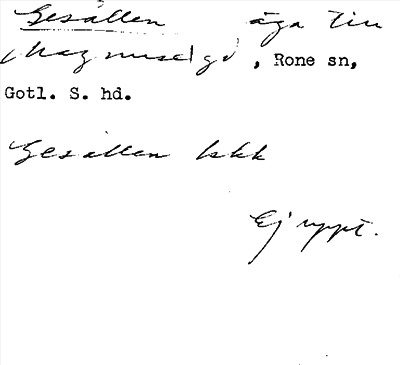 Gesällen äga till
Magnuse gd, Rone sn,
Gotl. S. hd.
Gesällen bkk
Ej uppt.